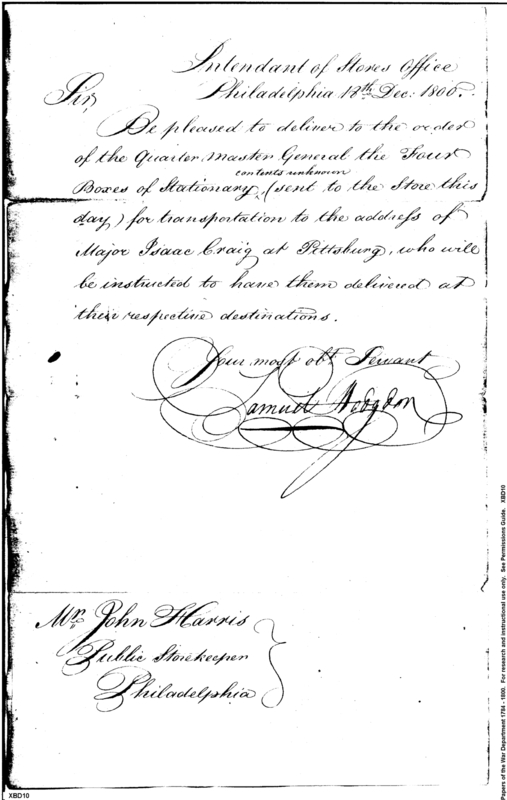 Intendant of Stores Office
Philadelphia 12th Dec: 1800.
Sir,
Be pleased to deliver to the order
of the Quarter Master General the Four
contents unknown
Boxes of Stationary, (sent to the Store this
day) for transportation to the address of
Major Isaac Craig at Pittsburg, who will
be instructed to have them delivered at
their respective destinations.
Your most obt Servant
Samuel Hodgdon
Mr. John Harris
Public Storekeeper
Philadelphia
XBD10
Papers of the War Department 1784 - 1800. For research and instructional use only. See Permissions Guide. XBD10